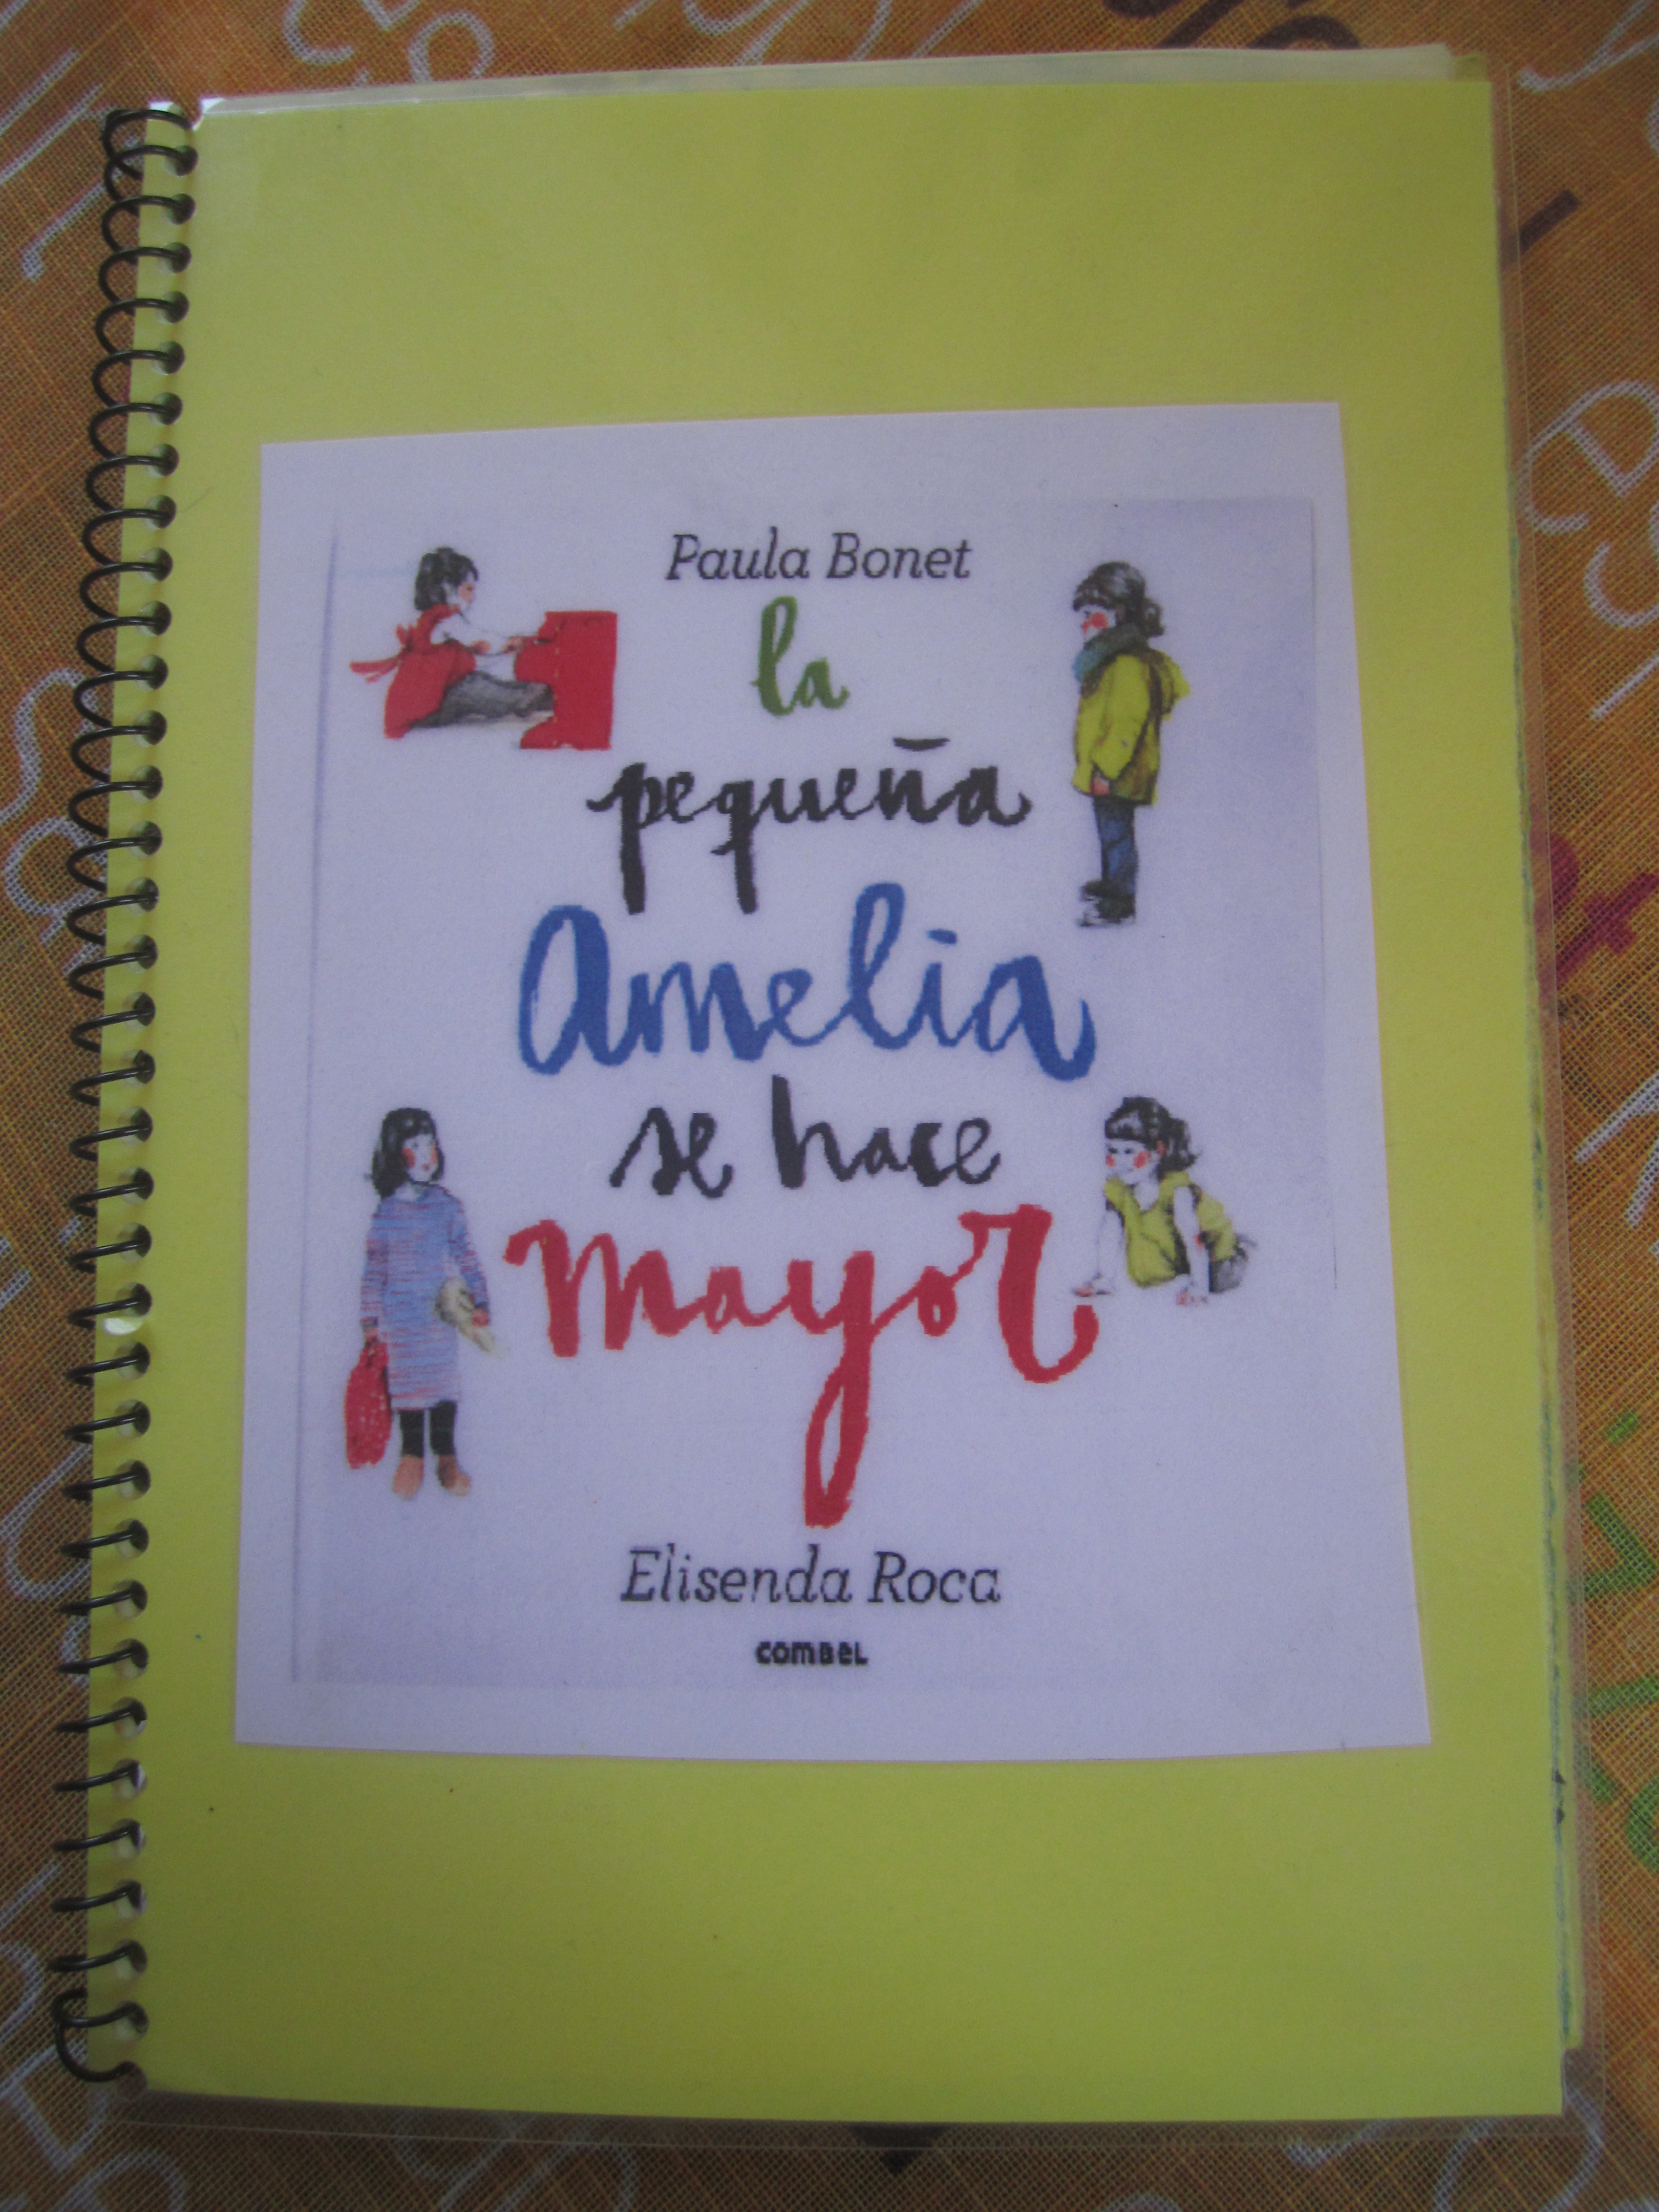 Paula Bonet
la
pequeña
Amelia
se hace
mayor
Elisenda Roca
COMBEL